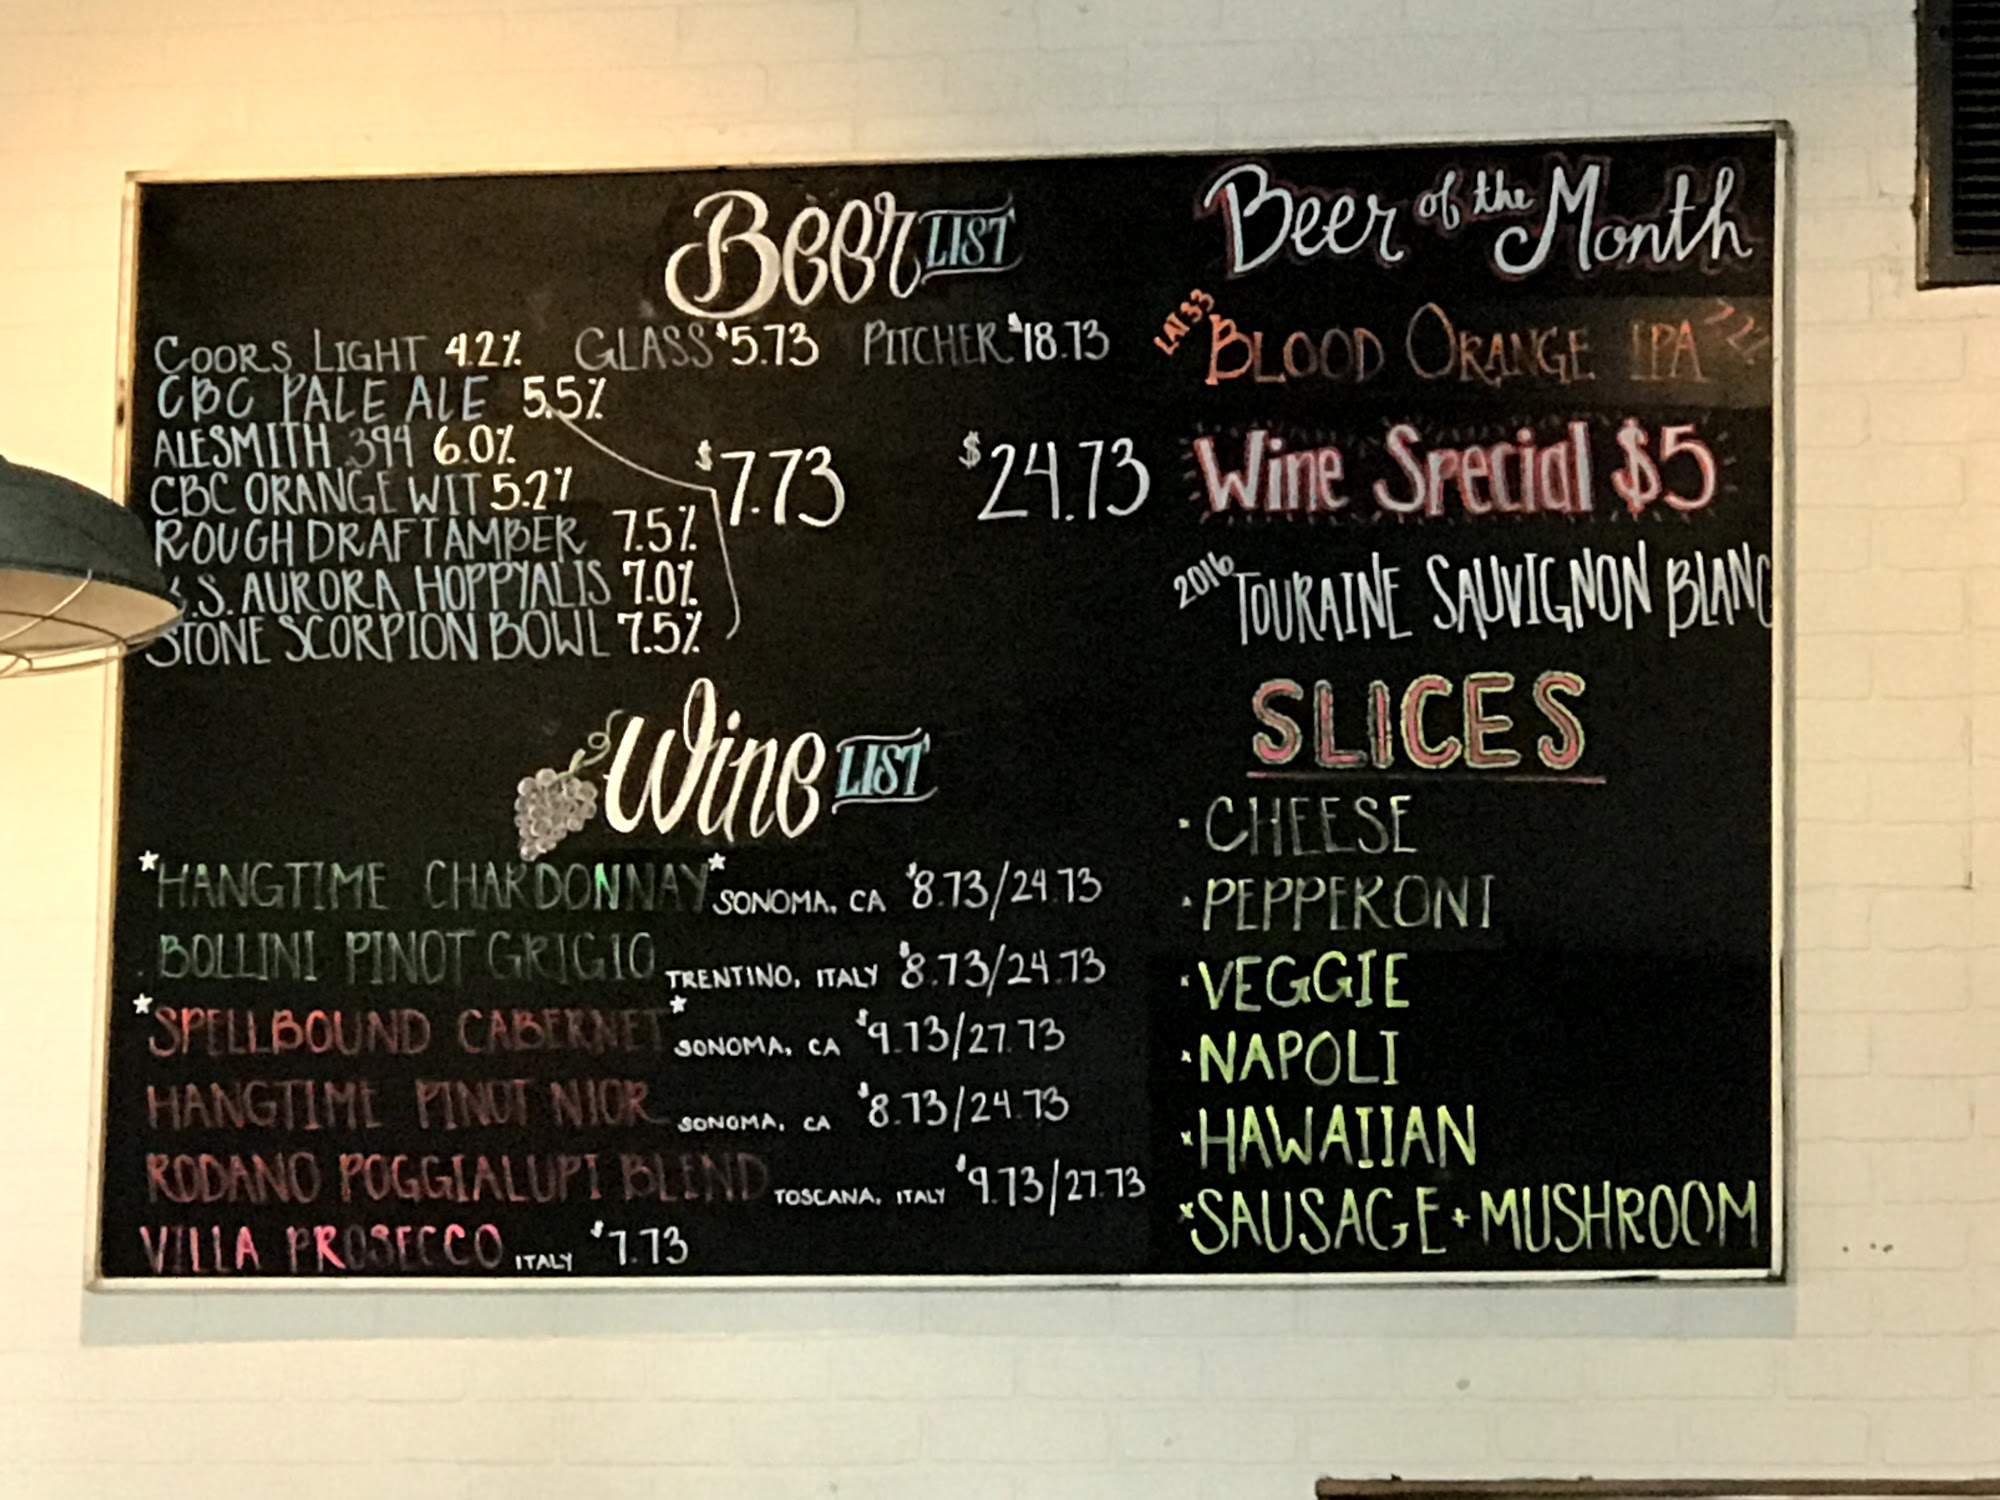 Beer LIST
COORS LIGHT 4.2% GLASS $5.73 PITCHER $18.73
CBC PALE ALE 5.5%
ALESMITH .394 6.0%
$7.73 $24.73
CBC ORANGE WIT 5.2%
ROUGH DRAFT AMBER 7.5%
.S. AURORA HOPPYALIS 7.0%
STONE SCORPION BOWL 7.5%
Wine LIST
*HANGTIME CHARDONNAY* SONOMA, CA $8.73/24.73
. BOLLINI PINOT GRIGIO TRENTINO, ITALY $8.73/24.73
*SPELLBOUND CABERNET* SONOMA, CA $9.73/27.73
HANGTIME PINOT NIOR SONOMA, CA $8.73/24.73
RODANO POGGIALUPI BLEND TOSCANA, ITALY $9.73/27.73
VILLA PROSECCO ITALY $7.73
Beer of the Month
LAT 33 BLOOD ORANGE IPA
Wine Special $5
2016 TOURAINE SAUVIGNON BLANC
SLICES
· CHEESE
· PEPPERONI
· VEGGIE
· NAPOLI
· HAWAIIAN
· SAUSAGE + MUSHROOM